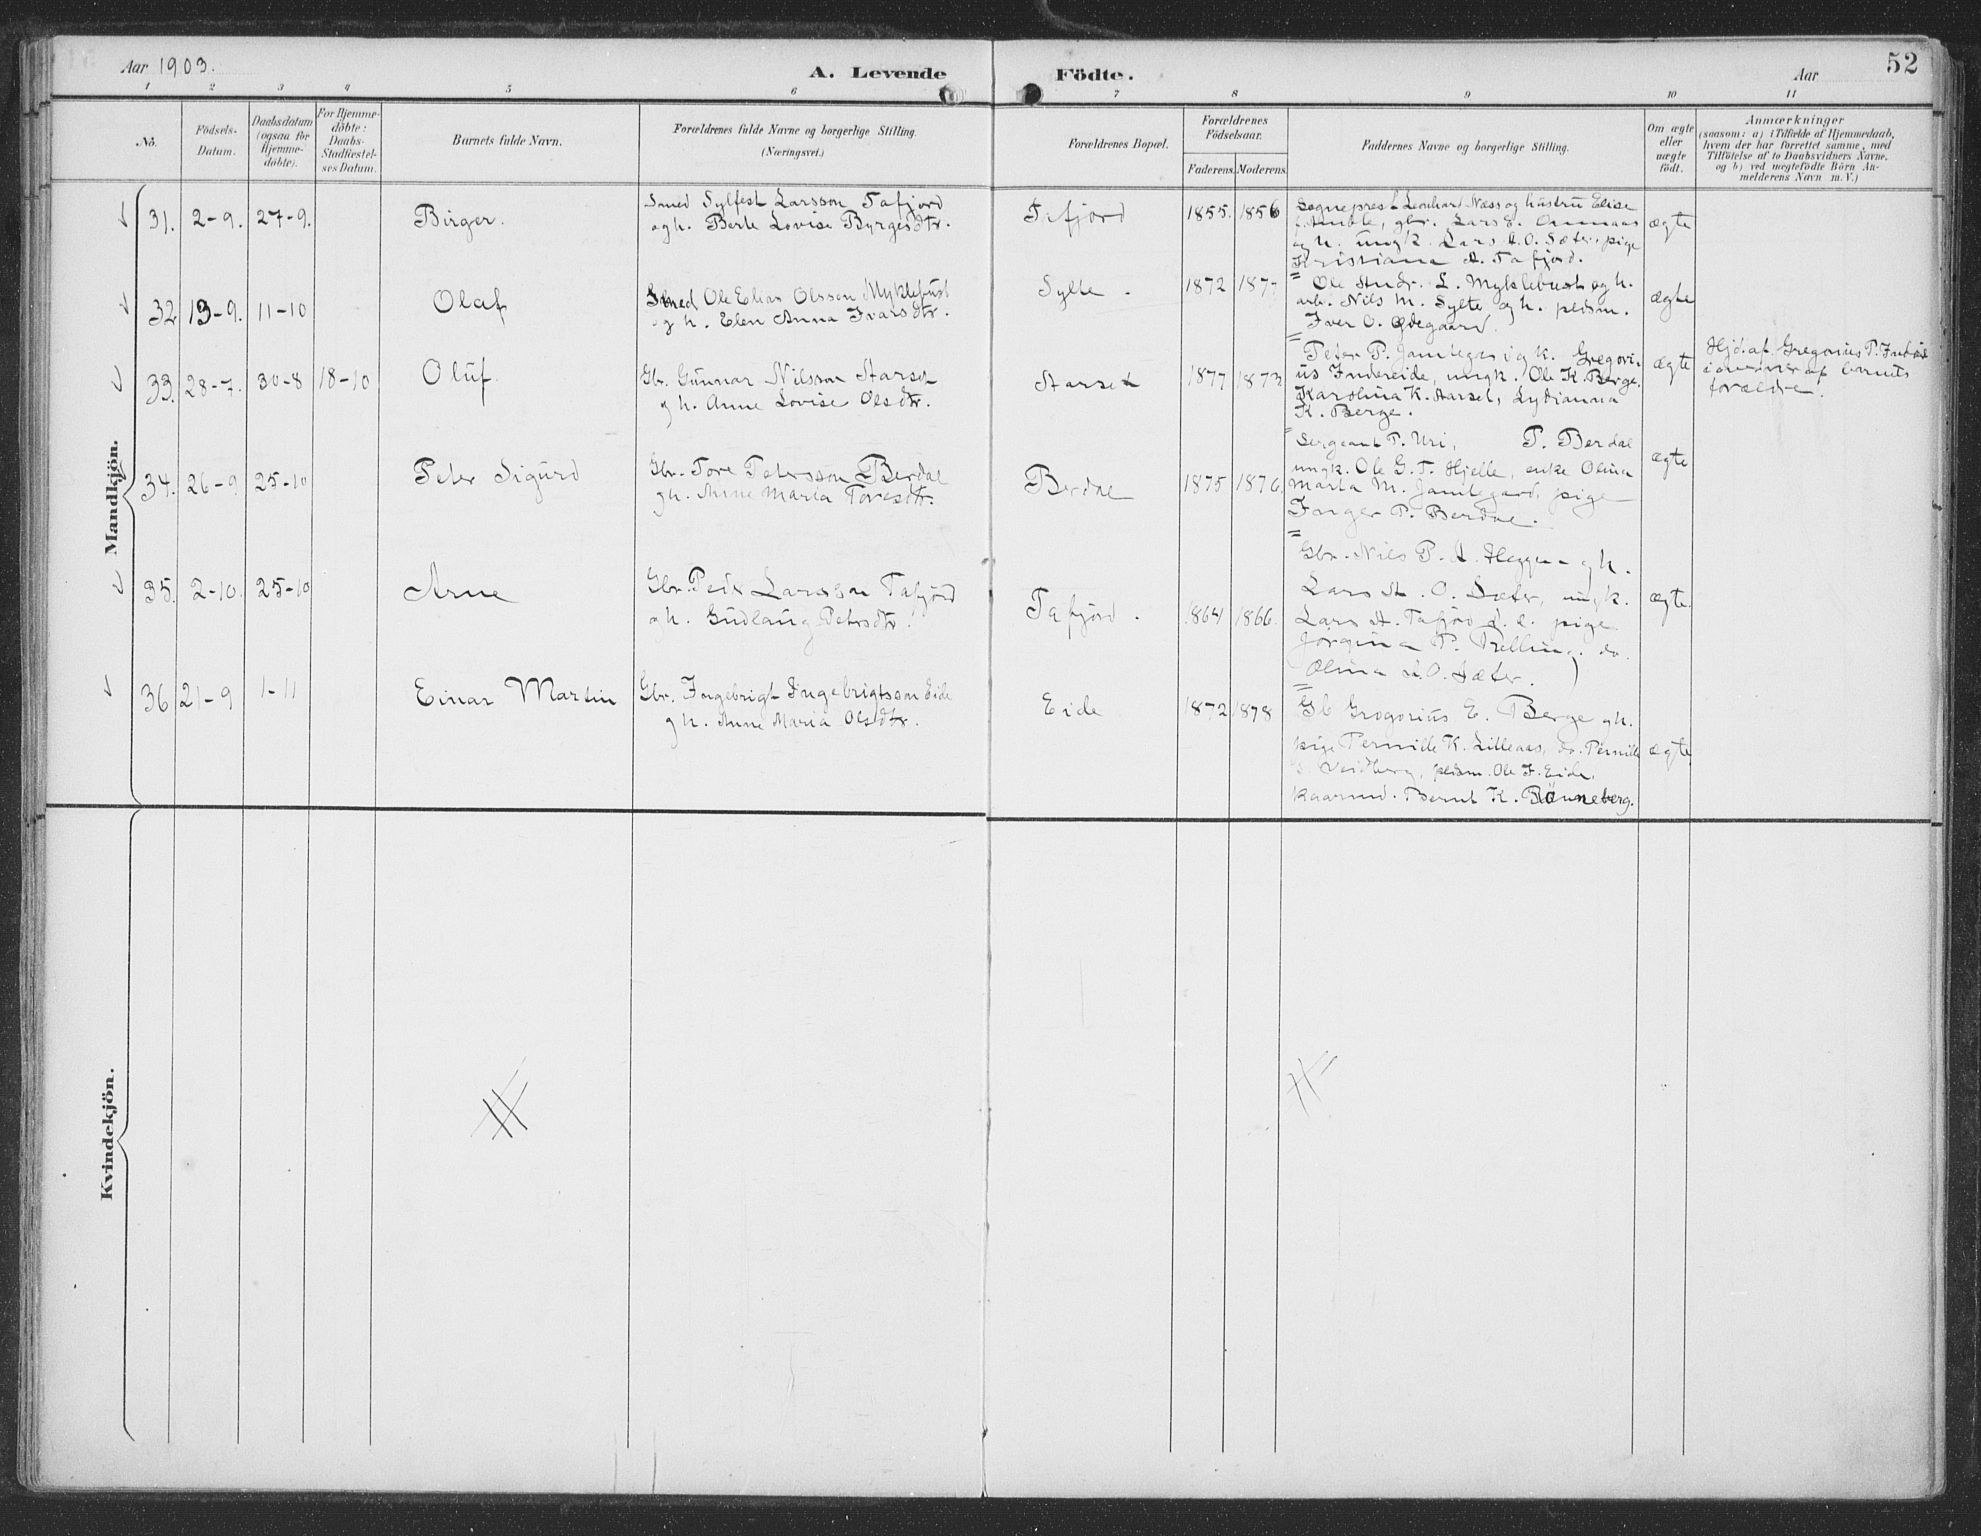 Aar 1903.
A. Levende Födte.
Aar
52
1 2 3 4 5 6 7 8 9 10 11
No.
Födsels-
Datum.
Daabsdatum
(ogsaa for
Hjemme-
döbte).
For Hjemme-
döbte:
Daabs-
Stadfæstel-
ses Datum.
Barnets fulde Navn.
Forældrenes fulde Navne og borgerlige Stilling.
(Næringsvei.)
Forældrenes Bopæl.
Forældrenes
Födselsaar.
Faderens. Moderens.
Faddernes Navne og borgerlige Stilling.
Om ægte
eller
uægte
födt.
Anmærkninger
(saasom: a) i Tilfælde af Hjemmedaab,
hvem der har forrettet samme, med
Tilföielse af to Daabsvidners Navne,
og b) ved uægtefödte Börn An-
melderens Navn m. V.)
Mandkjön.
31. 2-9. 27-9. Birger.
Smed Sylfest Larsson Tafjord
og h. Berte Lovise Byrgesdtr.
Tafjord 1855. 1856
Sogneprest Leonhard Næss og hustru Elise
f. Amble, gbr. Lars E. Onmaas
og h. ungk. Lars A. O. Sæter, pige
Kristiana A. Tafjord.
ægte
32 13-9. 11-10 Olaf
Smed Ole Elias Olsson Myklebust
og h. Elen Anna Ivarsdtr.
Sylte. 1872 1877
= Ole Andr. L. Myklebust og h.
arb. Nils M. Sylte og h. pldsm.
Iver O. Ødegaard.
ægte
33. 28-7. 30-8 18-10 Oluf
Gbr. Gunnar Nilsson Aarset
g h. Anne Lovise Olsdtr.
Aarset 1877 1873
= Peter P. Jamtegard g h. Gregori-
us Indreeide, ungk. Ole K. Berge,
Karolina K. Aarset, Lydianna
K. Berge.
ægte
Hjd. af Gregorius P. Indreeide
i nærvær af barnets
forældre.
34. 26-9 25-10 Peter Sigurd
Gbr. Tore Petersson Berdal
g h. Anne Maria Toresdtr.
Berdal 1875 1876.
= Sergeant P. Uri, P. Berdal
ungk. Ole G. T. Hjelle, enke Olina
Marta M. Jamtegard, pige
Inger P. Berdal.
ægte
35. 2-10. 25-10 Arne
Gbr. Peder Larsson Tafjord
g h. Gudlaug Petersdtr.
Tafjord. 1864 1866.
= Gbr. Nils P. A. Heggen g h.
Lars A. O. Sæter, ungk.
Lars A. Tafjord d. e. pige
Jørgina P. Relling, do.
Olina A. O. Sæter.
ægte.
36 21-9 1-11 Einar Martin
Gbr. Ingebrigt Ingebrigtsson Eide
g h. Anne Maria Olsdtr.
Eide 1872 1878
= Gb Grogorius E. Berge g h.
pige Pernille K. Lilleaas, do. Pernille
pldsm. Ole I. Eide,
Bernt K. Rønneberg.
ægte
Kvindekjön.